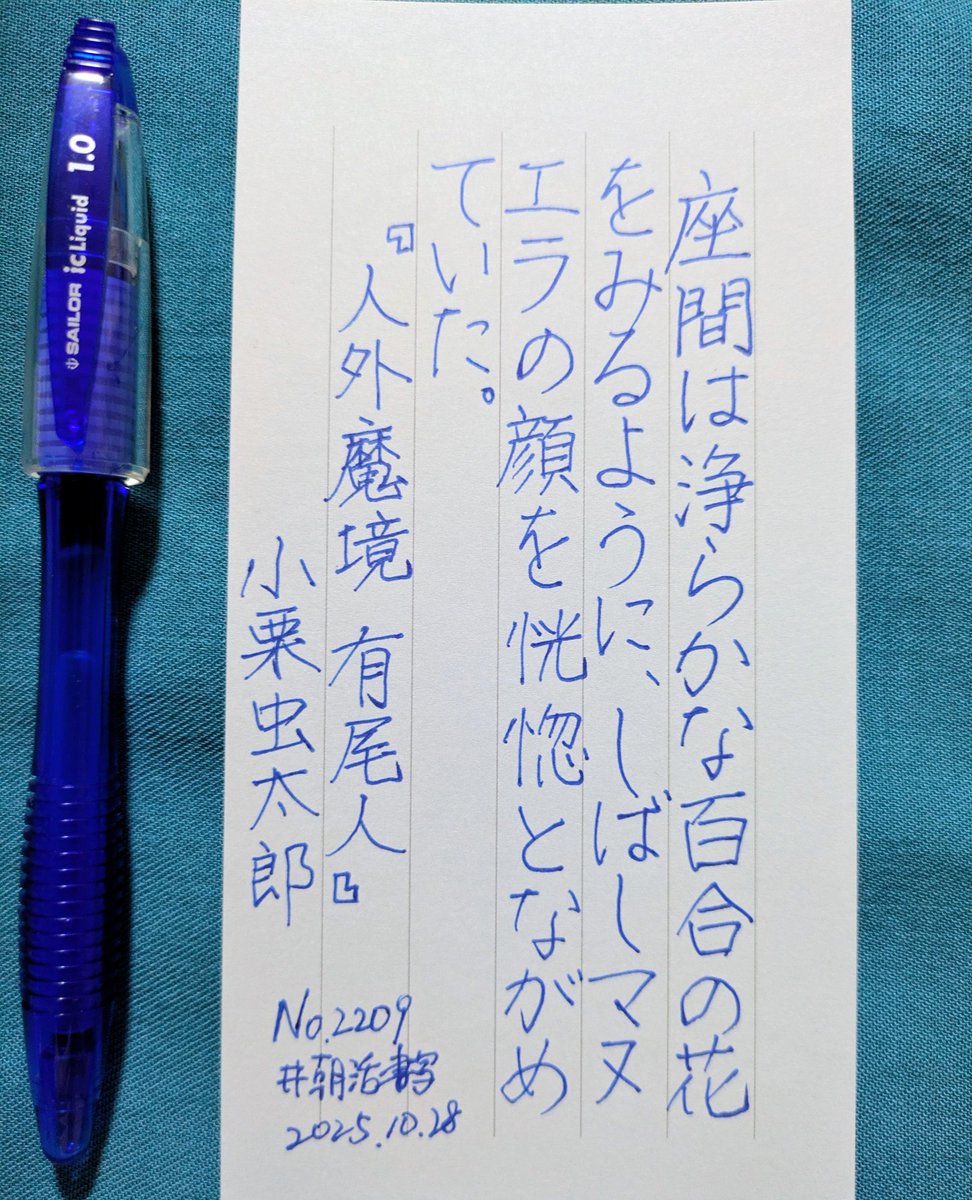 座間は浄らかな百合の花
をみるように、しばしマヌ
エラの顔を恍惚とながめ
ていた。
『人外魔境 有尾人』
小栗虫太郎
No.2209
#朝活書写
2025.10.28
SAILOR iC Liquid 1.0